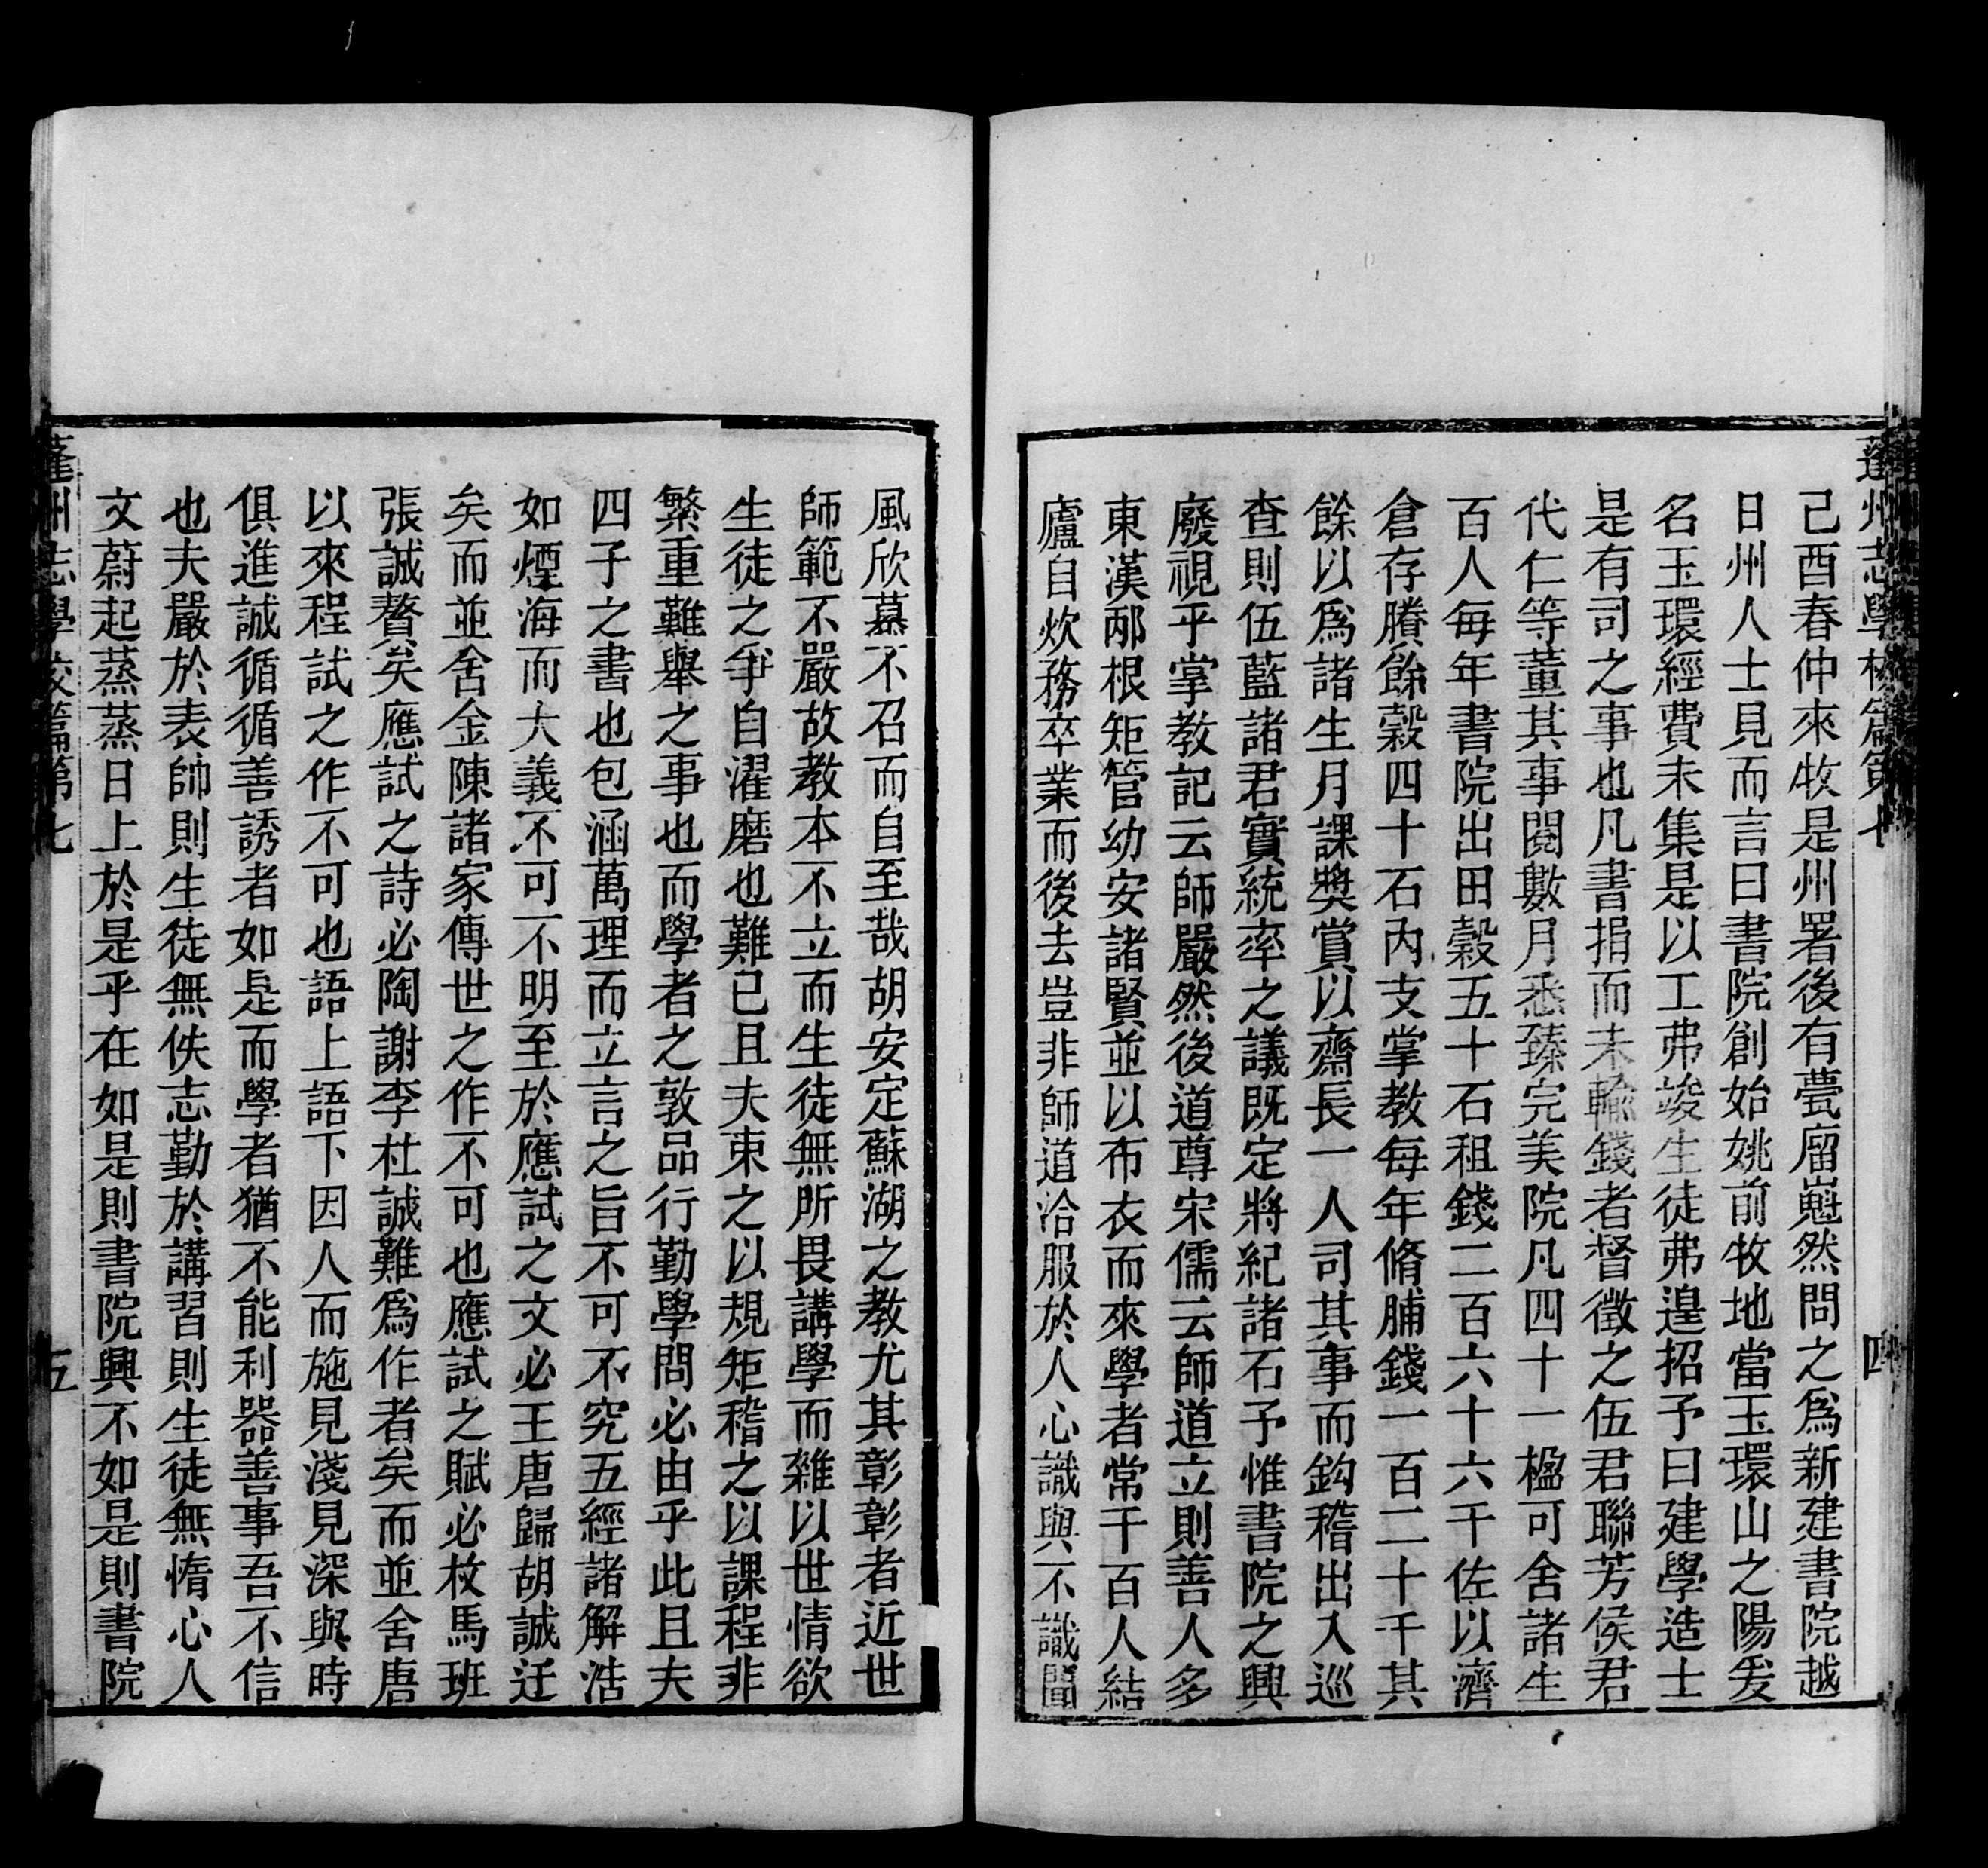 蓬州志學校篇第七 四
己酉春仲來牧是州署後有甍霤嵬然問之爲新建書院越
日州人士見而言曰書院創始姚前牧地當玉環山之陽爰
名玉環經費未集是以工弗竣生徒弗遑招予曰建學造士
是有司之事也凡書捐而未輸錢者督徵之伍君聯芳侯君
代仁等董其事閱數月悉臻完美院凡四十一楹可舍諸生
百人每年書院出田穀五十石租錢二百六十六千佐以濟
倉存賸餘穀四十石內支掌教每年脩脯錢一百二十千其
餘以爲諸生月課奬賞以齋長一人司其事而鈎稽出入巡
查則伍藍諸君實統率之議既定將紀諸石予惟書院之興
廢視乎掌教記云師嚴然後道尊宋儒云師道立則善人多
東漢邴根矩管幼安諸賢並以布衣而來學者常千百人結
廬自炊務卒業而後去豈非師道洽服於人心識與不識聞
風欣慕不召而自至哉胡安定蘇湖之教尤其彰彰者近世
師範不嚴故教本不立而生徒無所畏講學而雜以世情欲
生徒之爭自濯磨也難已且夫束之以規矩稽之以課程非
繁重難舉之事也而學者之敦品行勤學問必由乎此且夫
四子之書也包涵萬理而立言之旨不可不究五經諸解浩
如煙海而大義不可不明至於應試之文必王唐歸胡誠迂
矣而並舍金陳諸家傳世之作不可也應試之賦必枚馬班
張誠贅矣應試之詩必陶謝李杜誠難爲作者矣而並舍唐
以來程試之作不可也語上語下因人而施見淺見深與時
俱進誠循循善誘者如是而學者猶不能利器善事吾不信
也夫嚴於表帥則生徒無佚志勤於講習則生徒無惰心人
文蔚起蒸蒸日上於是乎在如是則書院興不如是則書院
蓬州志學校篇第七 五